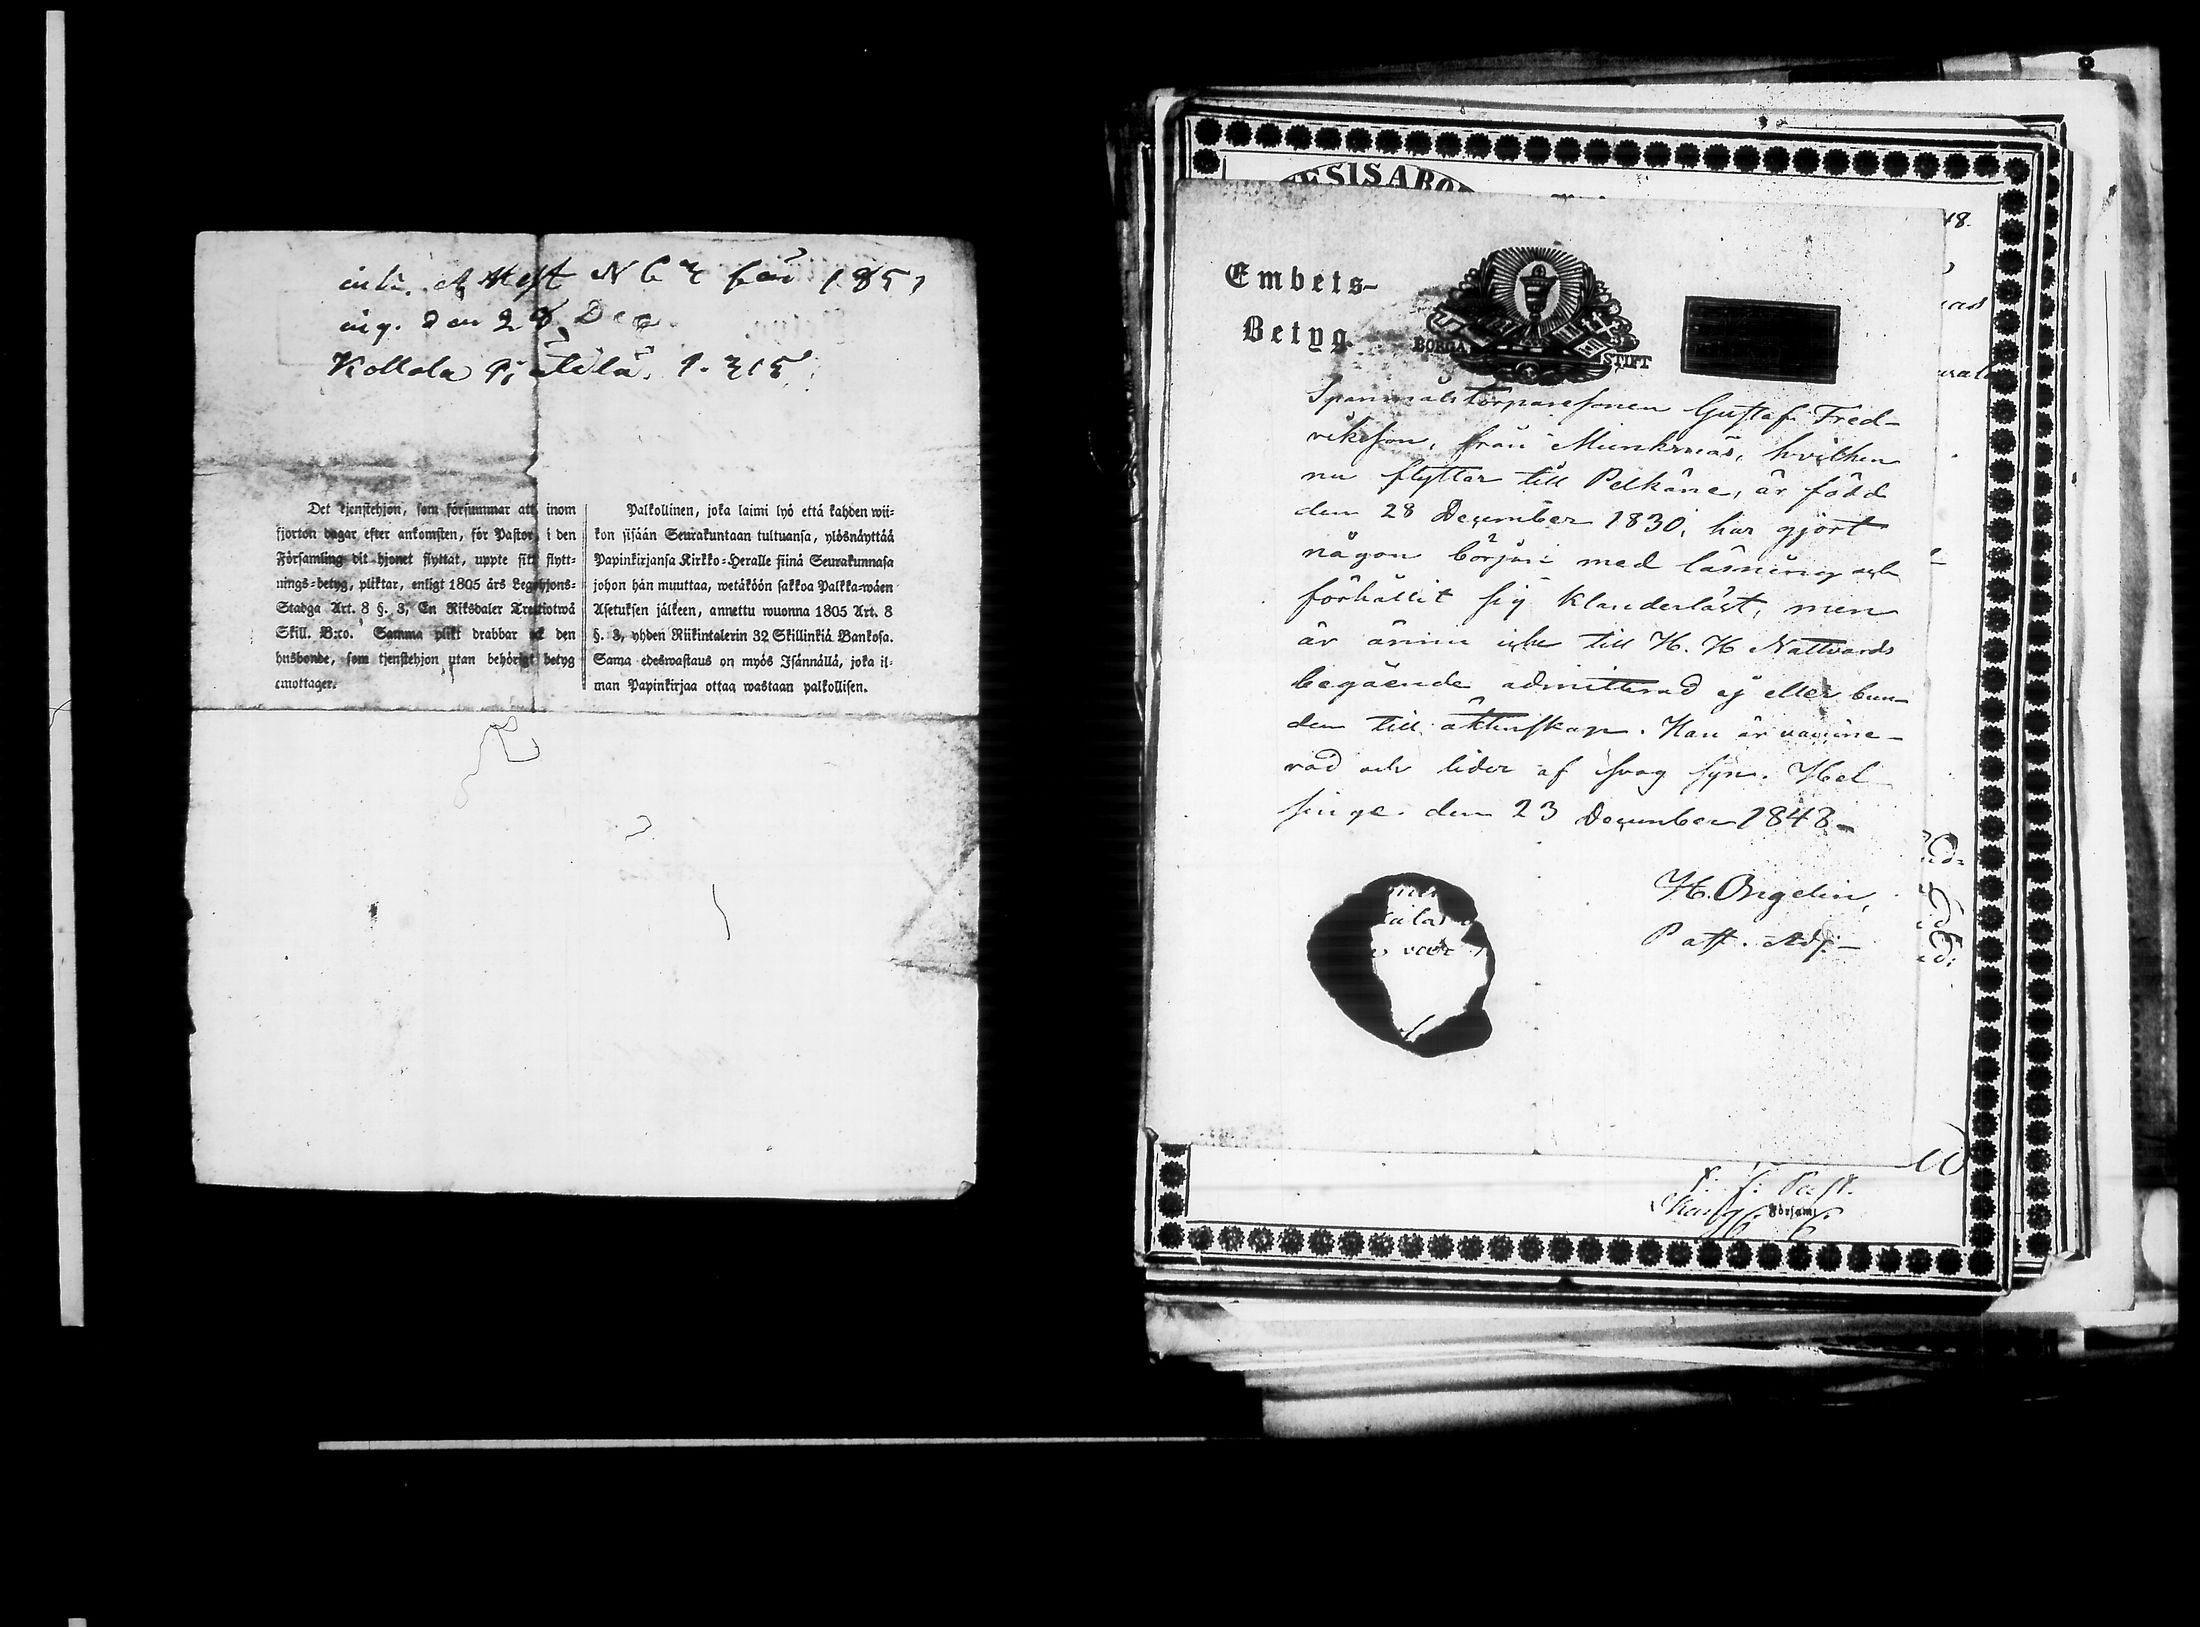 inl. Attest N 63 för 1851
ing. den 28 Dec
Kollola Pi ttilä. p. 315
Det tjenstehjon, som försummar att inom
fjorton dagar efter ankomsten, för Pastor i den
Församling dit hjonet flyttat, uppte sitt flytt-
nings-betyg, pliktar, enligt 1805 års Legohjons-
Stadga Art. 8 §. 3, En Riksdaler Trettiotwå
Skill. B:co. Samma plikt drabbar ock den
husbonde, som tjenstehjon utan behörigt betyg
emottager.
Palkollinen, joka laimi lyö että kahden wii-
kon sisään Seurakuntaan tultuansa, ylösnäyttää
Papinkirjansa Kirkko-Heralle siinä Seurakunnasa
johon hän muuttaa, wetäköön sakkoa Palkka-wäen
Asetuksen jälkeen, annettu wuonna 1805 Art. 8
§. 3, yhden Riikintalerin 32 Skillinkiä Bankosa.
Sama edeswastaus on myös Isännällä, joka il-
man Papinkirjaa ottaa wastaan palkollisen.
ESISABO
18.
Embets-
Betyg.
BORGÅ STIFT
Spanmålstorparesonen Gustaf Fred-
rikson, från Munknäs, hvilken
nu flyttar till Pelkäne, är född
den 28 December 1830, har gjort
någon början med läsning och
förhållit sig klanderlöst, men
är ännu icke till H. H. Nattvards
begående admitterad ej eller bun-
den till äktenskap. Han är vaccine-
rad och lider af svag syn. Hel
singe den 23 December 1848
H. Ongelin,
Past. Adj.
Församl.